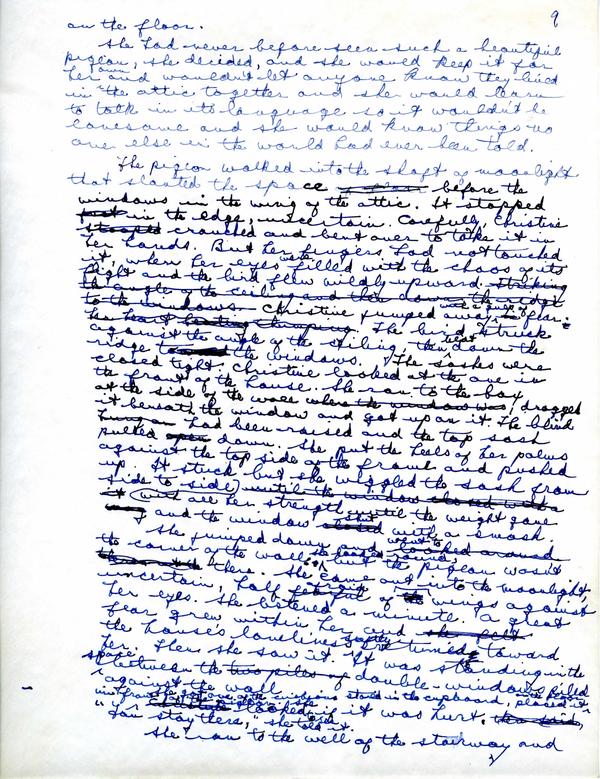 9
on the floor.
She had never before seen such a beautiful
pigeon, she decided, and she would keep it for
her own and wouldn't let anyone know they lived
in the attic together and she would learn
to talk in its language so it wouldn't be
lonesome and she would know things no
one else in the world had ever been told.
The pigeon walked into the shaft of moonlight
that slanted the space before the
windows in the wing of the attic. It stopped
in the edge, uncertain. Carefully, Christine
stooped crouched and bent over to take it in
her hands. But her fingers had not touched
it, when her eyes were filled with the chaos of its
flight and the bird flew wildly upward. striking
the angle of the ceiling and then down the ridge
to the windows. Christine jumped away, in fear.
her heart beating thumping. The bird struck
against the angle of the ceiling, then beat down the
ridge to the windows. The sashes were
closed tight. Christine looked at the one in
the front of the house. She ran to the box
at the side of the wall where the window was, dragged
it beneath the window and got up on it. The blind
had been raised and the top sash
pulled open down. She put the heels of her palms
against the top side of the frame and pushed
up. It stuck, but she wiggled the sash from
side to side, until the window closed with a
with all her strength, until the weight gave
and the window shut with a smash.
She jumped down and went to looked around
the corner of the wall, but the pigeon wasn't
there. She came out into the moonlight,
uncertain, half fearful of wings against
her eyes. She listened a minute. A great
fear grew within her and she felt
the house's loneliness turned toward
her. Then she saw it. It was standing in the
space between the two piles of double-windows piled
against the wall
it was hurt. she said,
"You stay there," she told it.
She ran to the well of the stairway and